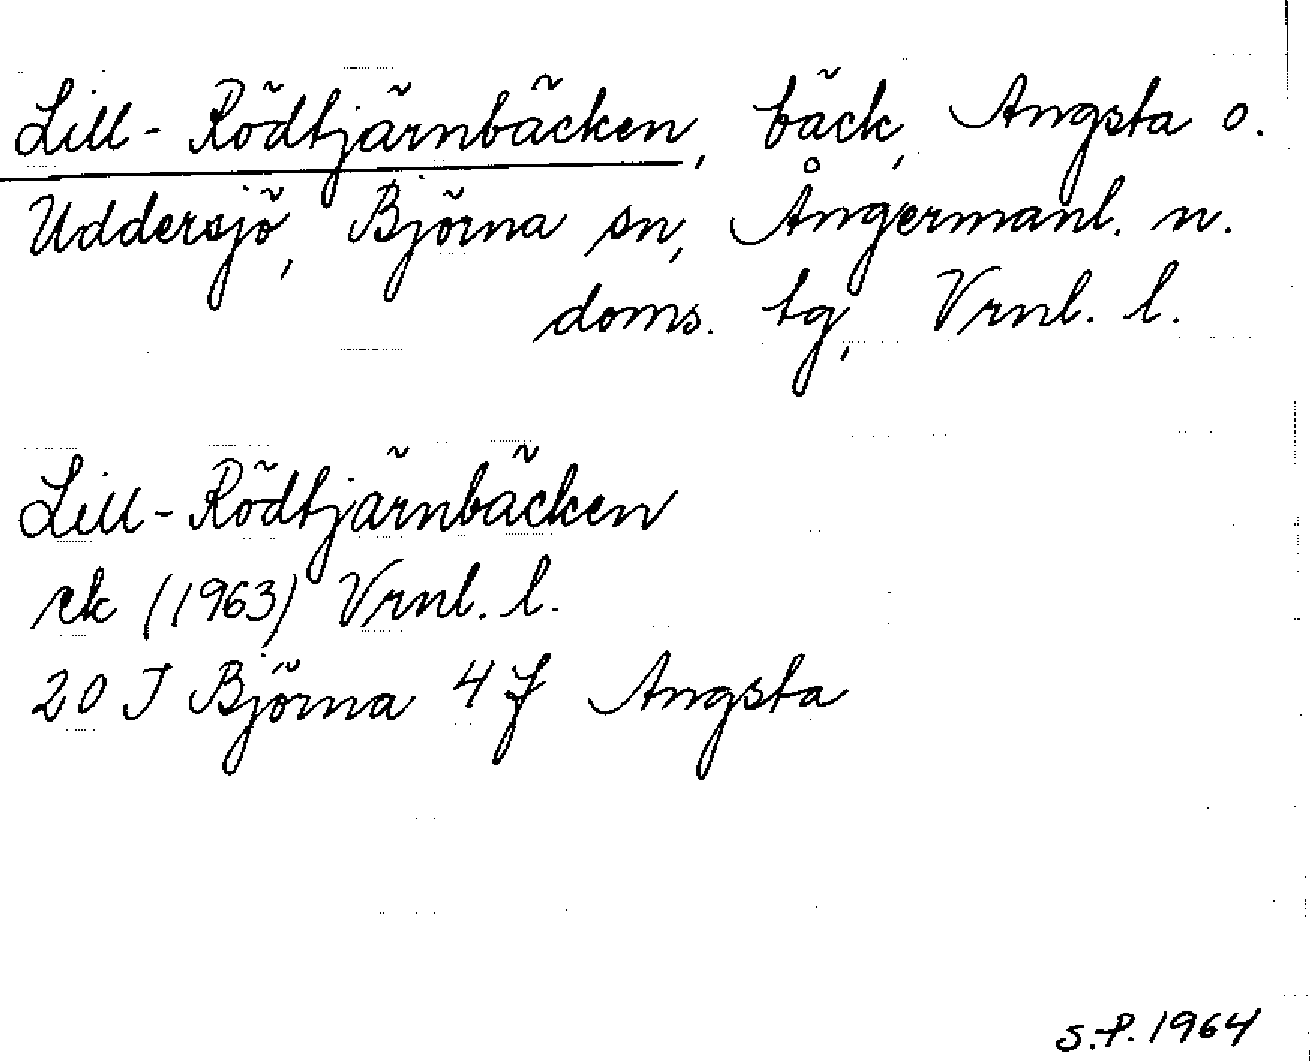 Lill-Rödtjärnbäcken, bäck, Angsta o.
Uddersjö, Björna sn, Ångermanl. n.
doms. tg, Vrnl. l.
Lill-Rödtjärnbäcken
ek (1963) Vrnl. l.
20 J Björna 4 f Angsta
S.P. 1964